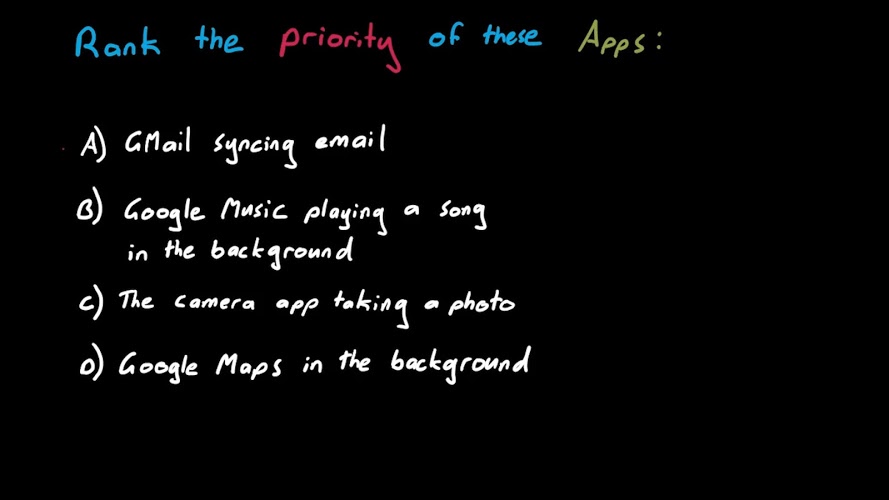 Rank the priority of these Apps:
A) GMail syncing email
B) Google Music playing a song
in the background
C) The camera app taking a photo
D) Google Maps in the background